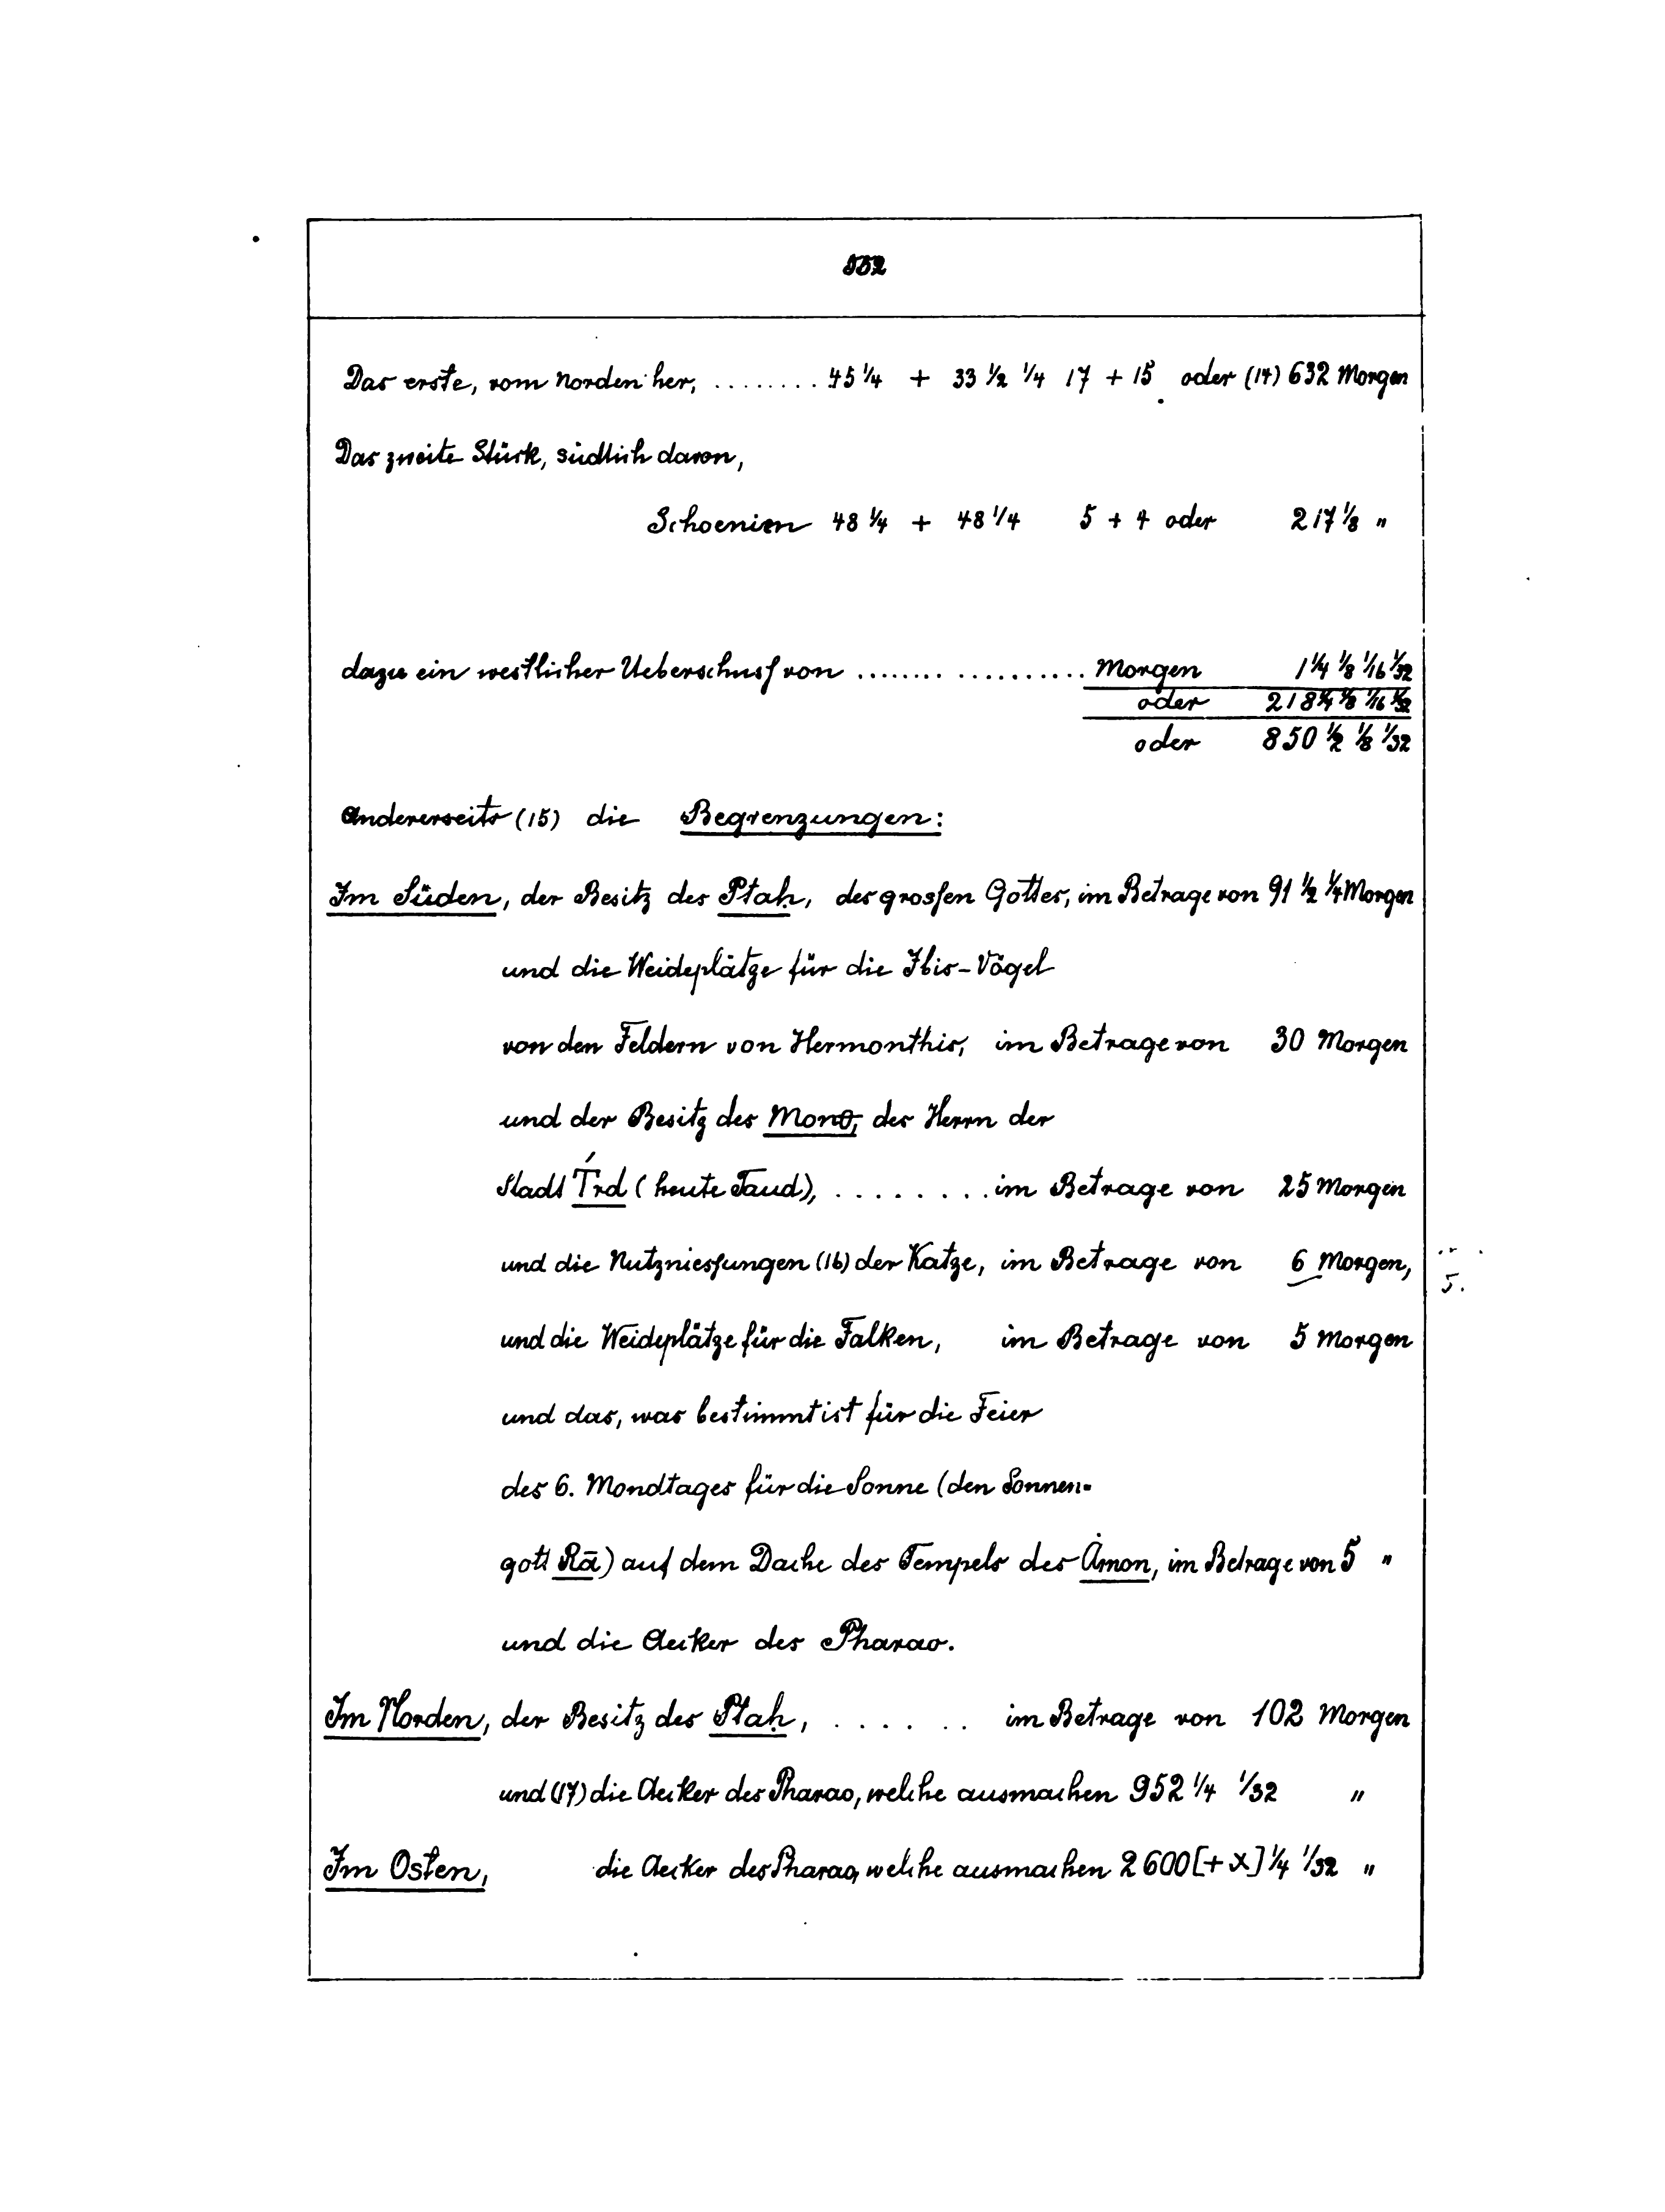 552
Das erste, vom Norden her, ........ 45 1/4 + 33 1/2 1/4 17 + 15 oder (14) 632 Morgen
Das zweite Stück, südlich davon,
Schoenien 48 1/4 + 48 1/4 5 + 4 oder 217 1/8 "
dazu ein westlicher Ueberschuss von ................. Morgen 1 1/4 1/8 1/16 1/32
oder 218 1/4 1/8 1/16 1/32
oder 850 1/2 1/8 1/32
Andererseits (15) die Begrenzungen:
Im Süden, der Besitz des Ptaḥ, des grossen Gottes, im Betrage von 91 1/2 1/4 Morgen
und die Weideplätze für die Ibis-Vögel
von den Feldern von Hermonthis, im Betrage von 30 Morgen
und der Besitz des Monθ, des Herrn der
Stadt T́rd (heute Taud), ........ im Betrage von 25 Morgen
und die Nutzniessungen (16) der Katze, im Betrage von 6 Morgen,
5.
und die Weideplätze für die Falken, im Betrage von 5 Morgen
und das, was bestimmt ist für die Feier
des 6. Mondtages für die Sonne (den Sonnen-
gott Rā) auf dem Dache des Tempels des Ȧmon, im Betrage von 5 "
und die Aecker des Pharao.
Im Norden, der Besitz des Ptaḥ, ...... im Betrage von 102 Morgen
und (17) die Aecker des Pharao, welche ausmachen 952 1/4 1/32 "
Im Osten, die Aecker des Pharao, welche ausmachen 2600 [+ x] 1/4 1/32 "